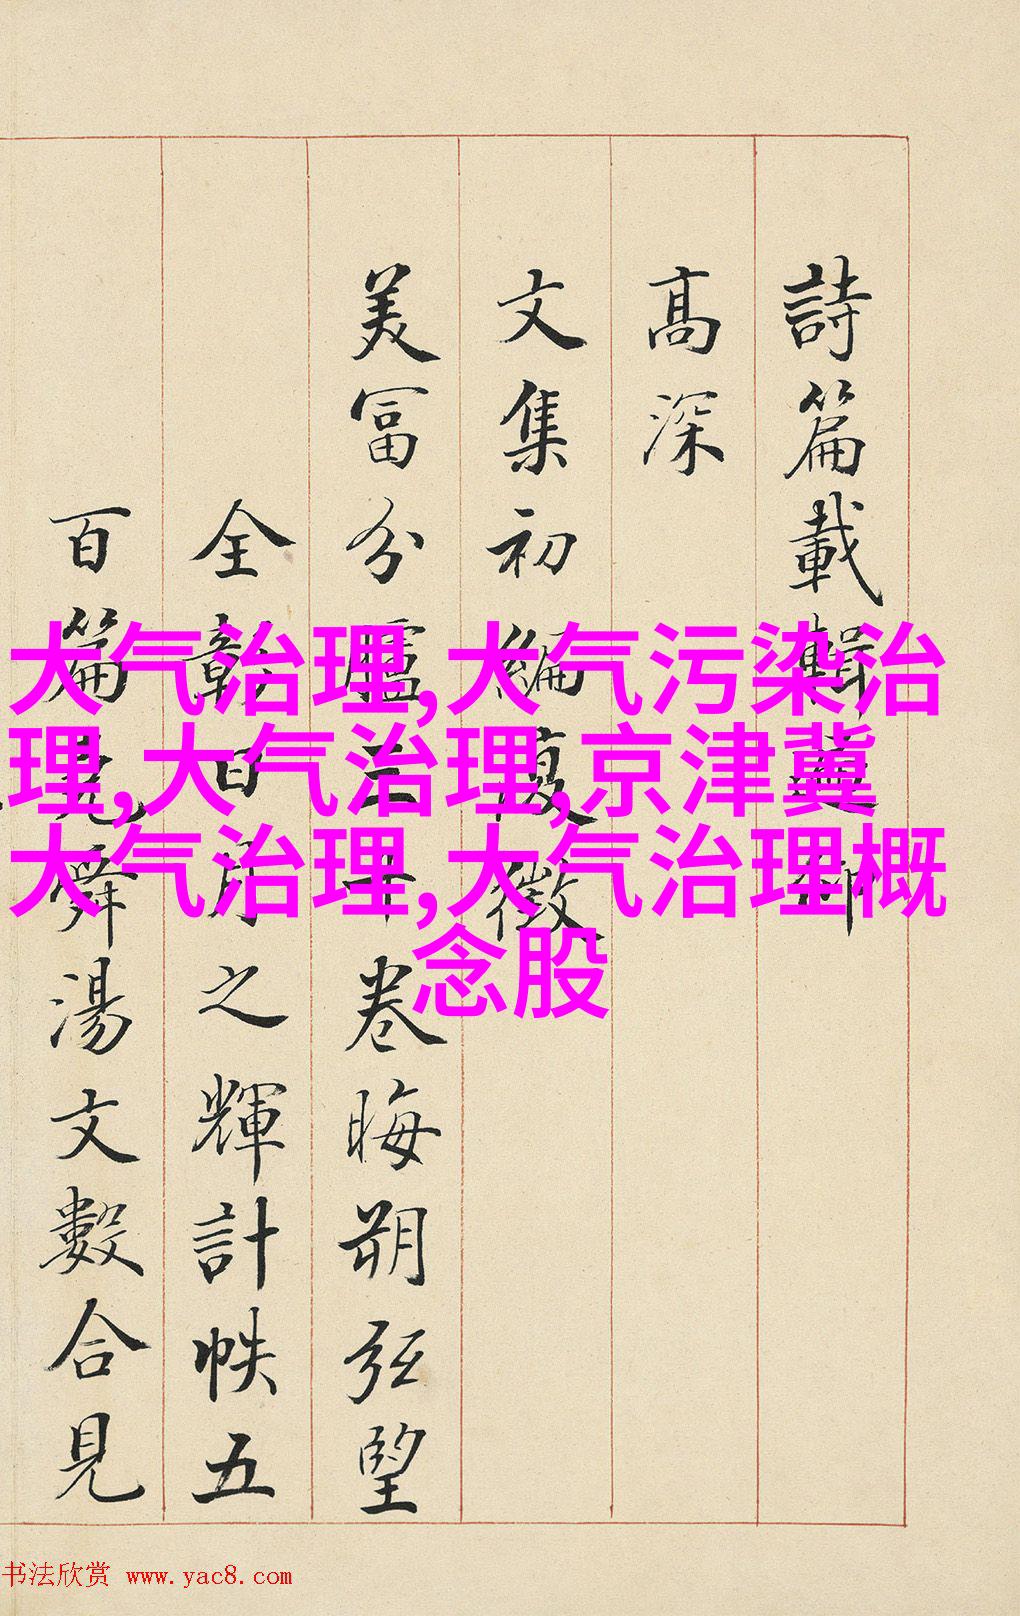 詩篇載輯
高深
文集初編復徵
美富分廬三十卷晦朔弦望
全彰日月之輝計帙五
百篇堯舜湯文數合見
大气治理,大气污染治
理,大气治理,京津冀
大气治理,大气治理概
念股
书法欣赏 www.yac8.com